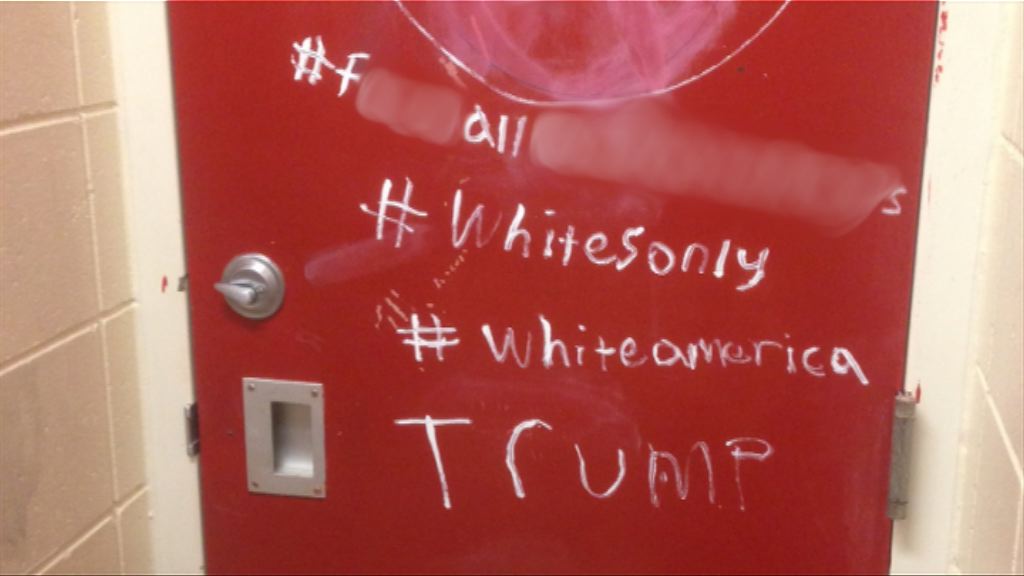 #F all s
#Whitesonly
#whiteamerica
TrUMP